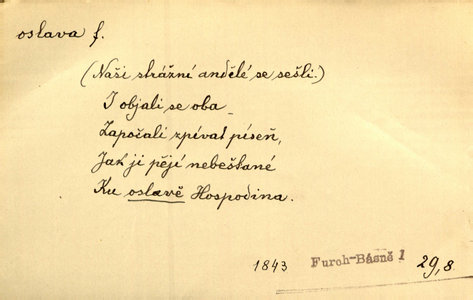 oslava f.
(Naši strážní andělé se sešli.)
I objali se oba
Zapožali zpívat píseň,
Jak ji pějí nebešťané
Ku oslavě Hospodina.
1843 Furch-Básně 1 29,8